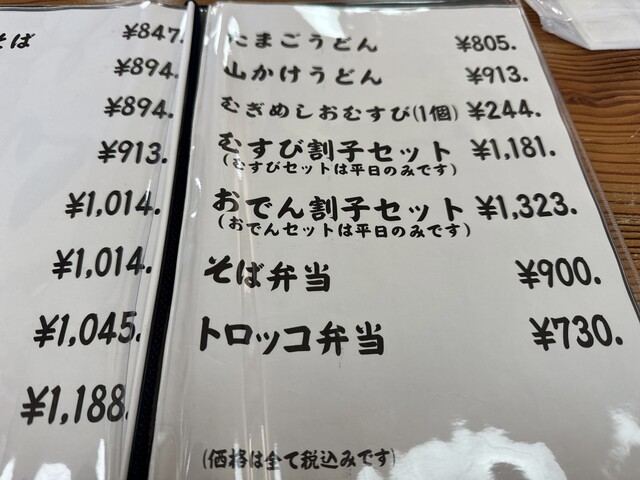 そば ¥847.
¥894.
¥894.
¥913.
¥1,014.
¥1,014.
¥1,045.
¥1,188.
たまごうどん ¥805.
山かけうどん ¥913.
むぎめしおむすび(1個) ¥244.
むすび割子セット ¥1,181.
(むすびセットは平日のみです)
おでん割子セット ¥1,323.
(おでんセットは平日のみです)
そば弁当 ¥900.
トロッコ弁当 ¥730.
(価格は全て税込みです)